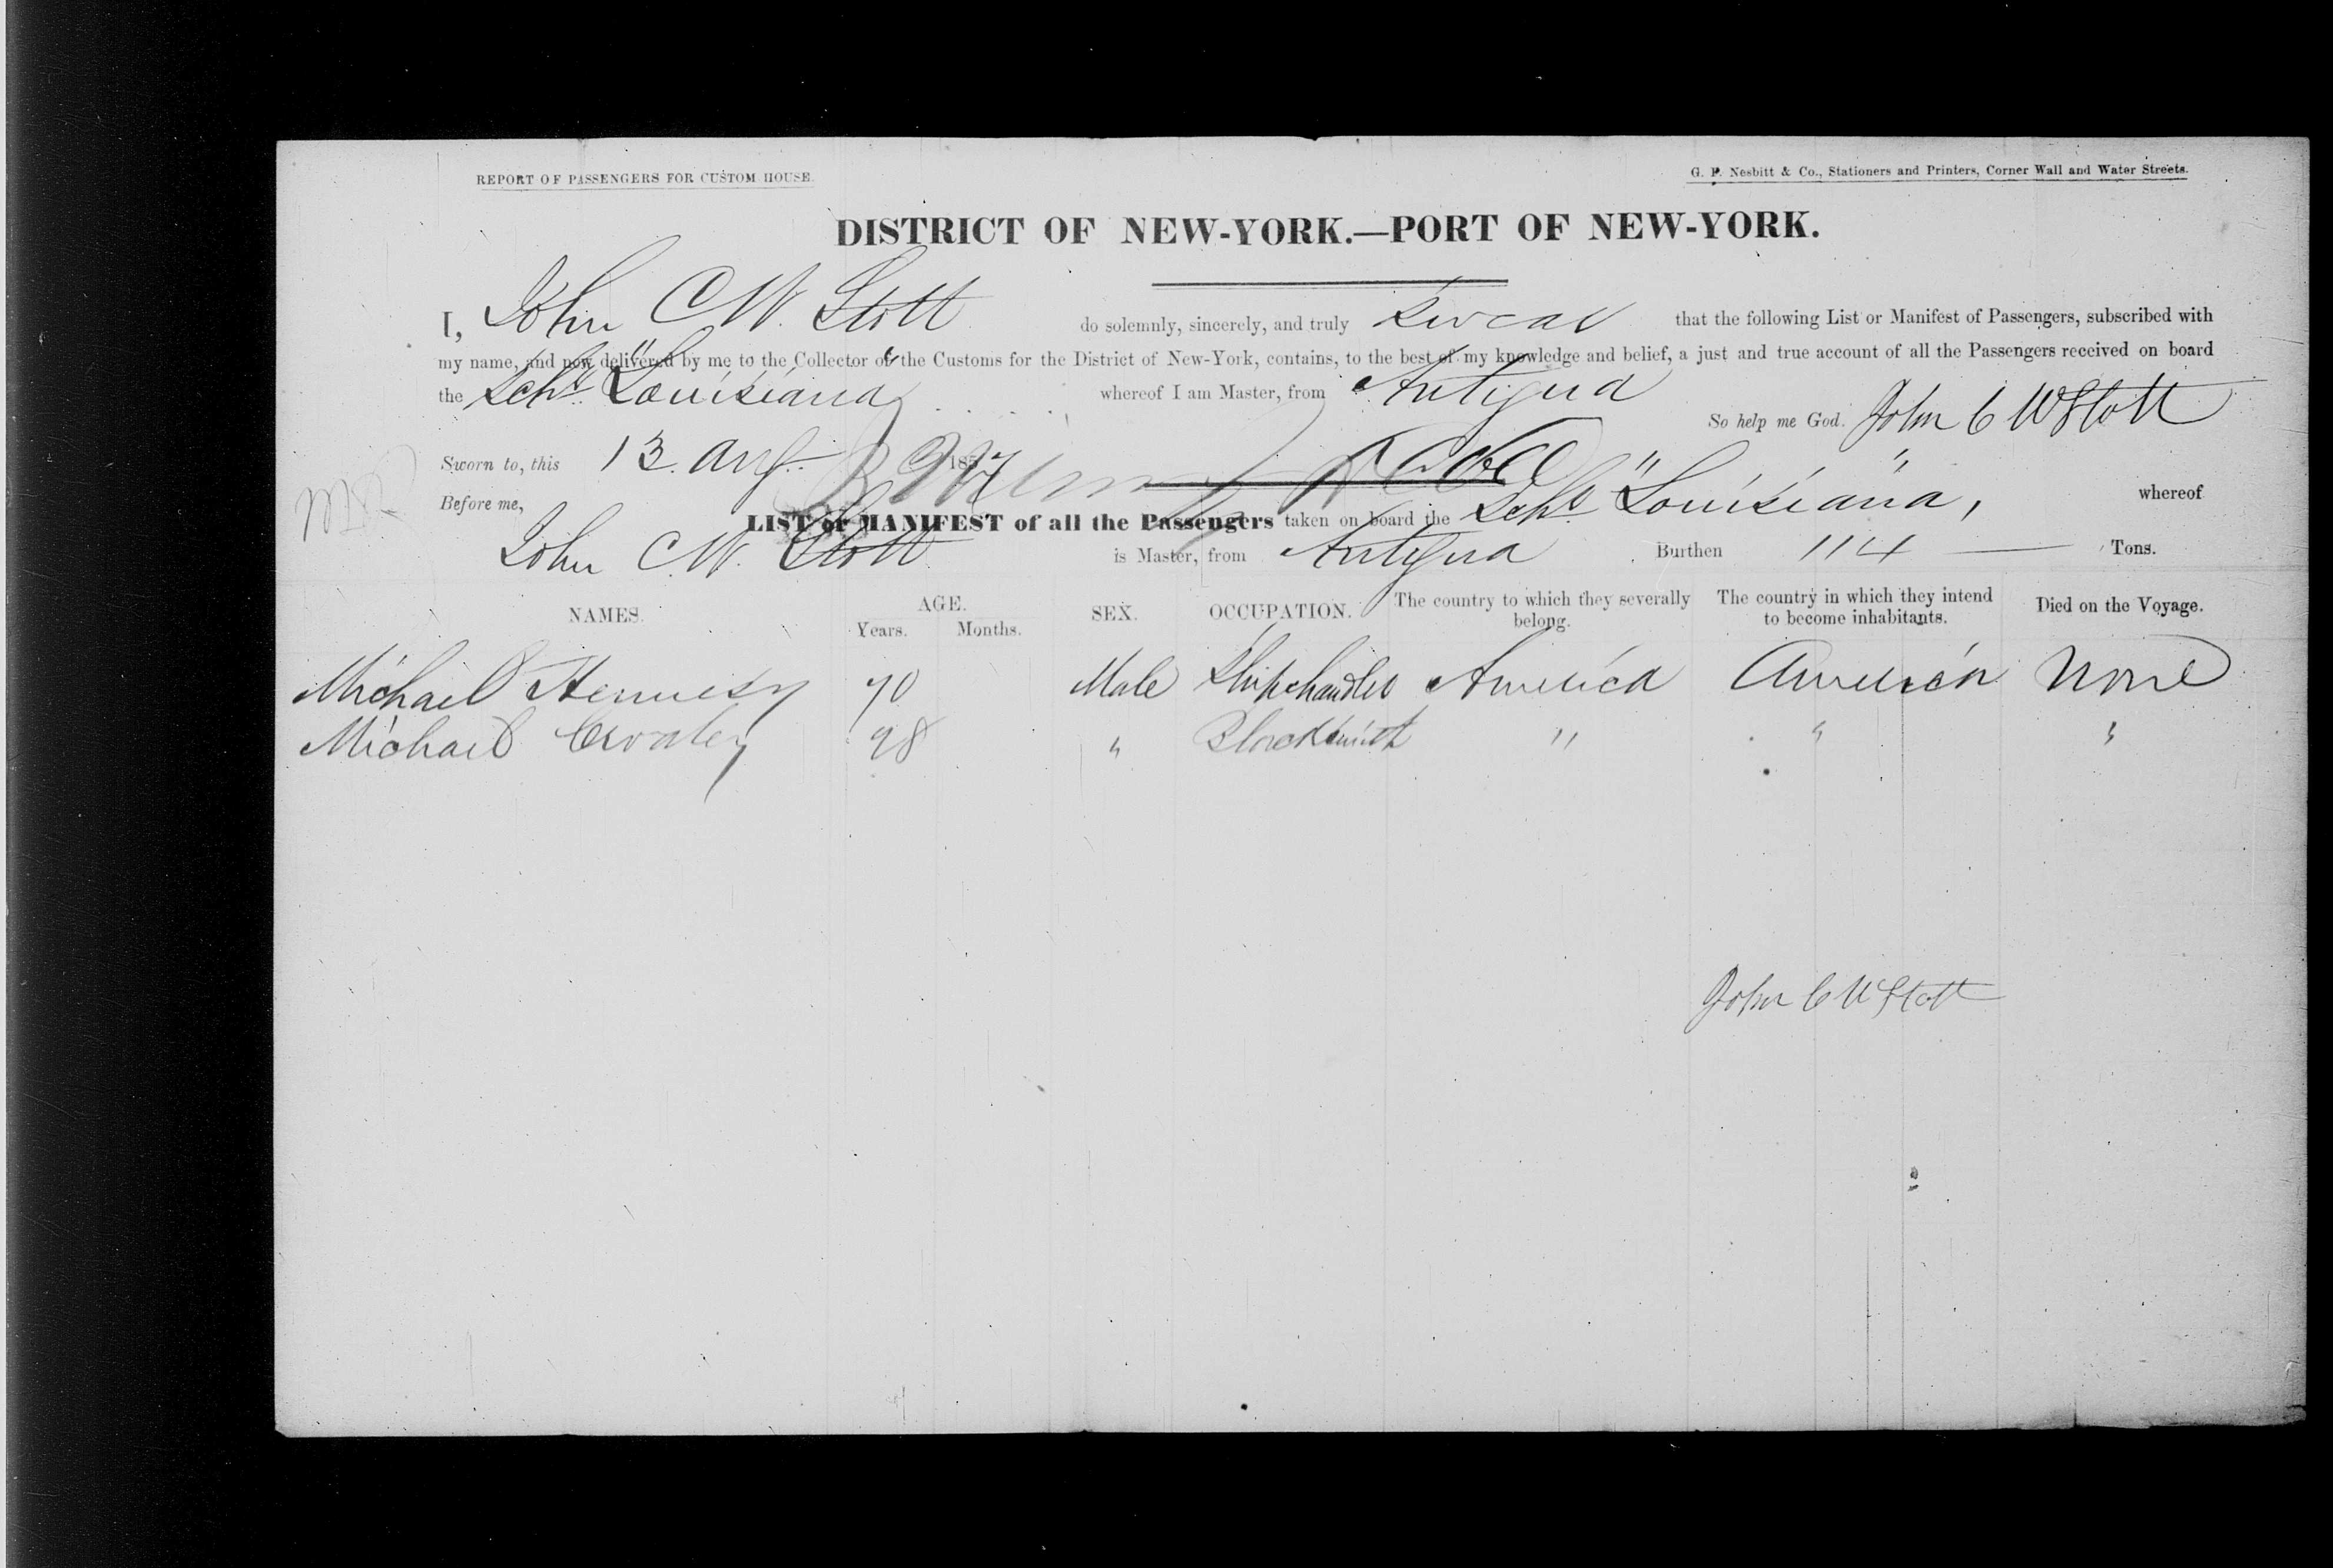 REPORT OF PASSENGERS FOR CUSTOM HOUSE.
G. F. Nesbitt & Co., Stationers and Printers, Corner Wall and Water Streets.
DISTRICT OF NEW-YORK.—PORT OF NEW-YORK.
I, John C W. Stott do solemnly, sincerely, and truly swear that the following List or Manifest of Passengers, subscribed with
my name, and now delivered by me to the Collector of the Customs for the District of New-York, contains, to the best of my knowledge and belief, a just and true account of all the Passengers received on board
the Schr "Louisiana" whereof I am Master, from Antigua
So help me God. John C W Stott
Sworn to, this 13. Aug. 1857
Before me,
LIST or MANIFEST of all the Passengers taken on board the Schr "Louisiana", whereof
John C W. Stott is Master, from Antigua Burthen 114 — Tons.
NAMES. AGE. Years. Months. SEX. OCCUPATION. The country to which they severally belong. The country in which they intend to become inhabitants. Died on the Voyage.
Michael Hennesy 40 Male Shipchandler America America None
Michael 48 " Blacksmith " " "
John C W Stott